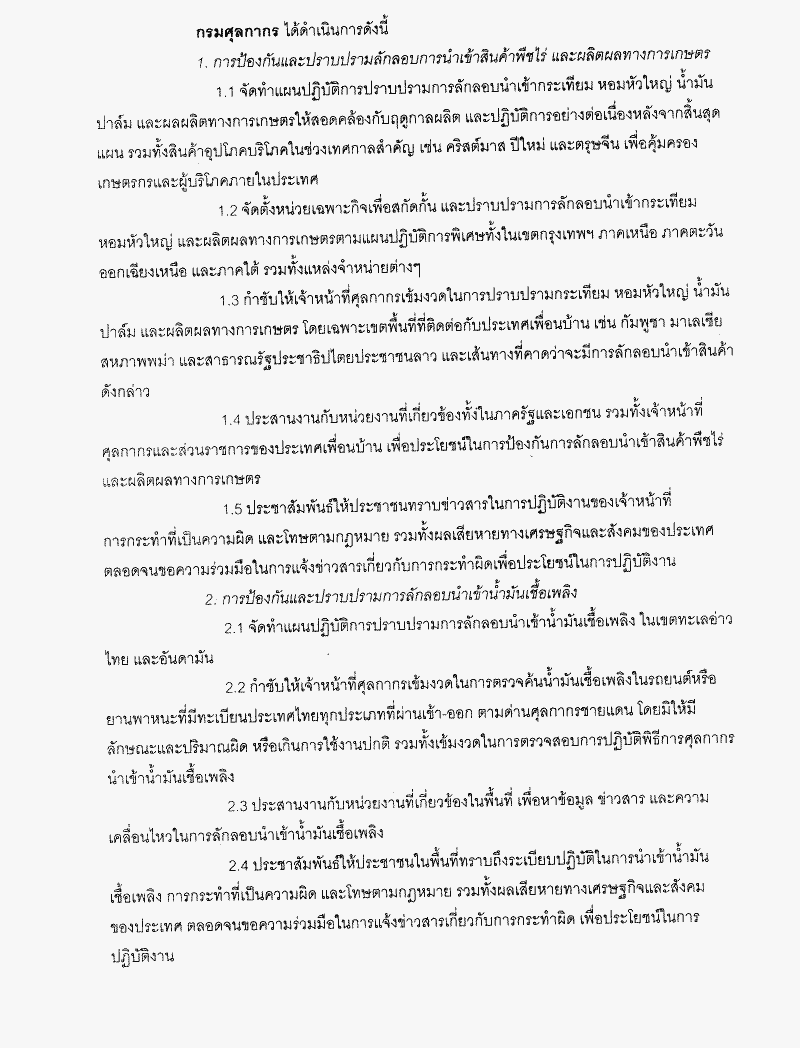 กรมศุลกากร ได้ดำเนินการดังนี้
1. การป้องกันและปราบปรามลักลอบการนำเข้าสินค้าพืชไร่ และผลิตผลทางการเกษตร
1.1 จัดทำแผนปฏิบัติการปราบปรามการลักลอบนำเข้ากระเทียม หอมหัวใหญ่ น้ำมัน
ปาล์ม และผลผลิตทางการเกษตรให้สอดคล้องกับฤดูกาลผลิต และปฏิบัติการอย่างต่อเนื่องหลังจากสิ้นสุด
แผน รวมทั้งสินค้าอุปโภคบริโภคในช่วงเทศกาลสำคัญ เช่น คริสต์มาส ปีใหม่ และตรุษจีน เพื่อคุ้มครอง
เกษตรกรและผู้บริโภคภายในประเทศ
1.2 จัดตั้งหน่วยเฉพาะกิจเพื่อสกัดกั้น และปราบปรามการลักลอบนำเข้ากระเทียม
หอมหัวใหญ่ และผลิตผลทางการเกษตรตามแผนปฏิบัติการพิเศษทั้งในเขตกรุงเทพฯ ภาคเหนือ ภาคตะวัน
ออกเฉียงเหนือ และภาคใต้ รวมทั้งแหล่งจำหน่ายต่างๆ
1.3 กำชับให้เจ้าหน้าที่ศุลกากรเข้มงวดในการปราบปรามกระเทียม หอมหัวใหญ่ น้ำมัน
ปาล์ม และผลิตผลทางการเกษตร โดยเฉพาะเขตพื้นที่ที่ติดต่อกับประเทศเพื่อนบ้าน เช่น กัมพูชา มาเลเซีย
สหภาพพม่า และสาธารณรัฐประชาธิปไตยประชาชนลาว และเส้นทางที่คาดว่าจะมีการลักลอบนำเข้าสินค้า
ดังกล่าว
1.4 ประสานงานกับหน่วยงานที่เกี่ยวข้องทั้งในภาครัฐและเอกชน รวมทั้งเจ้าหน้าที่
ศุลกากรและส่วนราชการของประเทศเพื่อนบ้าน เพื่อประโยชน์ในการป้องกันการลักลอบนำเข้าสินค้าพืชไร่
และผลิตผลทางการเกษตร
1.5 ประชาสัมพันธ์ให้ประชาชนทราบข่าวสารในการปฏิบัติงานของเจ้าหน้าที่
การกระทำที่เป็นความผิด และโทษตามกฎหมาย รวมทั้งผลเสียหายทางเศรษฐกิจและสังคมของประเทศ
ตลอดจนขอความร่วมมือในการแจ้งข่าวสารเกี่ยวกับการกระทำผิดเพื่อประโยชน์ในการปฏิบัติงาน
2. การป้องกันและปราบปรามการลักลอบนำเข้าน้ำมันเชื้อเพลิง
2.1 จัดทำแผนปฏิบัติการปราบปรามการลักลอบนำเข้าน้ำมันเชื้อเพลิง ในเขตทะเลอ่าว
ไทย และอันดามัน
2.2 กำชับให้เจ้าหน้าที่ศุลกากรเข้มงวดในการตรวจค้นน้ำมันเชื้อเพลิงในรถยนต์หรือ
ยานพาหนะที่มีทะเบียนประเทศไทยทุกประเภทที่ผ่านเข้า-ออก ตามด่านศุลกากรชายแดน โดยมิให้มี
ลักษณะและปริมาณผิด หรือเกินการใช้งานปกติ รวมทั้งเข้มงวดในการตรวจสอบการปฏิบัติพิธีการศุลกากร
นำเข้าน้ำมันเชื้อเพลิง
2.3 ประสานงานกับหน่วยงานที่เกี่ยวข้องในพื้นที่ เพื่อหาข้อมูล ข่าวสาร และความ
เคลื่อนไหวในการลักลอบนำเข้าน้ำมันเชื้อเพลิง
2.4 ประชาสัมพันธ์ให้ประชาชนในพื้นที่ทราบถึงระเบียบปฏิบัติในการนำเข้าน้ำมัน
เชื้อเพลิง การกระทำที่เป็นความผิด และโทษตามกฎหมาย รวมทั้งผลเสียหายทางเศรษฐกิจและสังคม
ของประเทศ ตลอดจนขอความร่วมมือในการแจ้งข่าวสารเกี่ยวกับการกระทำผิด เพื่อประโยชน์ในการ
ปฏิบัติงาน